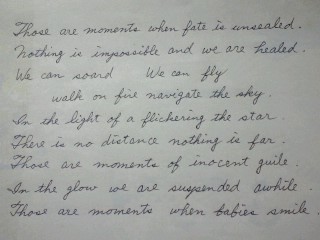 Those are moments when fate is unsealed.
Nothing is impossible and we are healed.
We can soard We can fly
walk on fire navigate the sky.
In the light of a flichering the star
There is no distance nothing is far.
Those are moments of inocent guile.
In the glow we are suspended awhile.
Those are moments when babies smile.